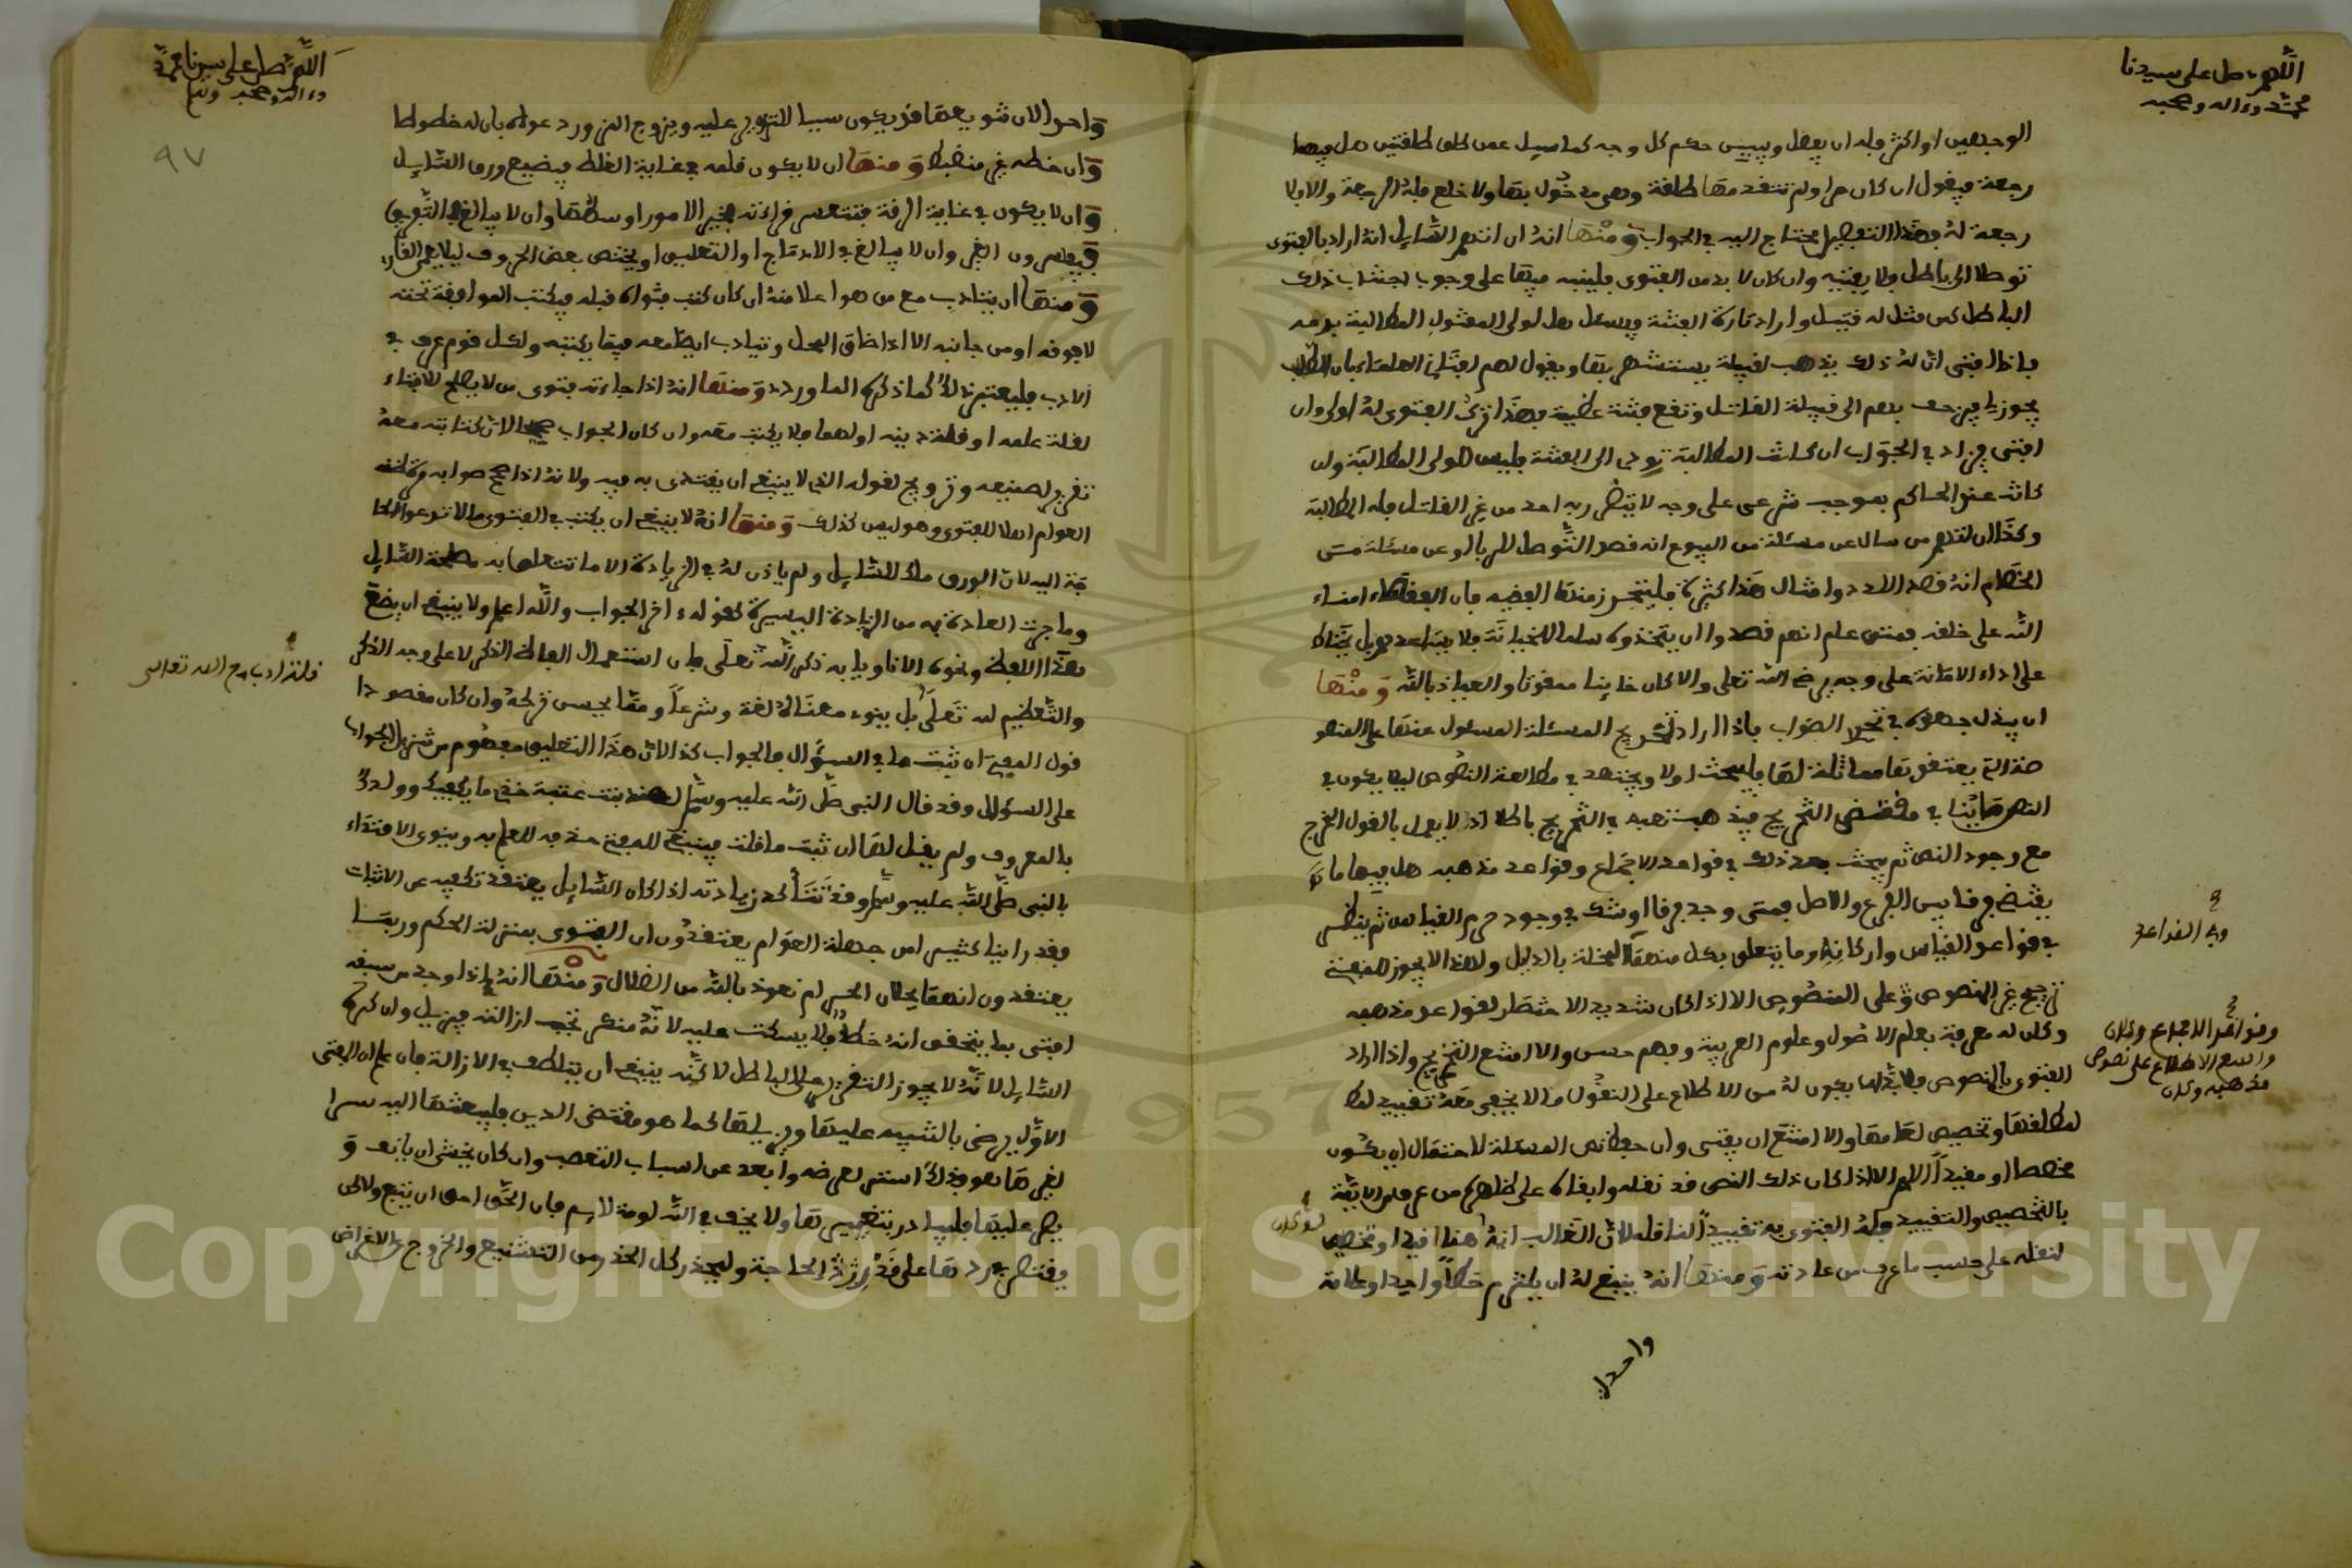 اللهم صل على سيدنا
محمد وءاله وصحبه
الوجهين او اكثر فله ان يفصل ويبين حكم كل وجه كما سيل عمن طلق طلقتين هل فيهما
رجعة فيقول ان كان حرا ولم تتقدمها طلقة وهى مدخول بها ولا خلع فله الرجعة والا فلا
رجعة له فهذا التفصيل محتاج اليه في الجواب ومنها انه ان اتهم السايل انه اراد بالفتوى
توصلا الى باطل فلا يفتيه وان كان لا بد من الفتوى فلينبه فيها على وجوب اجتناب ذلك
الباطل كمن قتل له قتيل واراد اثارة الفتنة ويسئل هل لولى المقتول المطالبة بدمه
فاذا افتى ان له ذلك يذهب لقبيلة يستنشهر بها ويقول لهم افتانى العلماء بان الطلب
يجوز لى فيزحف بهم الى قبيلة القاتل وتقع فتنة عظيمة فهذا ترك الفتوى له اولى وان
افتى فيزاد في الجواب ان كانت المطالبة تودى الى الفتنة فليس للولى المطالبة وان
كانت عند الحاكم بموجب شرعى على وجه لا يتضرر به احد من غير القاتل فله المطالبة
وكذا ان اتهم من سال عن مسئلة من البيوع انه قصد التوصل للربا او عن مسئلة من
الخصام انه قصد اللدد وامثال هذا كثيرة فليتحرز منها الفقيه فان الفقهاء امناء
الله على خلقه فمتى علم انهم قصدوا ان يتخذوه سلما للخيانة فلا يساعدهم بل يحتاط
على اداء الامانة على وجه يرضى الله تعلى والا كان خاينا ممقوتا والعياذ بالله ومنها
ان يبذل جهده في تحرى الصواب فاذا اراد تخريج المسئلة المسئول عنها على المنصو
صة التى يعتقدها مماثلة لها فليبحث اولا ويجتهد في مطالعة النصوص ليلا يكون في
النص ما يخالف مقتضى التخريج فيذهب تعبه في التخريج باطلا اذ لا يعمل بالقول المخرج
مع وجود النص ثم يبحث بعد ذلك في قواعد الاجماع وقواعد مذهبه هل فيها ما
يقتضى فرقا بين الفرع والاصل فمتى وجد فرقا او شك في وجوده حرم القياس ثم ينظر
في قواعد القياس واركانه وما يتعلق بكل منها المخلة بالدليل ولهذا لا يجوز للمفتى
تخريج غير المنصوص على المنصوص الا اذا كان شديد الاستحضار لقواعد مذهبه
وكان له معرفة بعلم الاصول وعلوم العربية وفهم حسن والا امتنع التخريج واذا اراد
الفتوى بالنصوص فلا بد ان يكون له من الاطلاع على النقول ما لا يخفى معه تقييد
لمطلقها وتخصيص لعامها والا امتنع ان يفتى وان حفظ نص المسئلة لاحتمال ان يكون
مخصصا او مقيدا اللهم الا اذا كان ذلك النص قد نقله وابقاه على ظاهره من عرف من الايمة
بالتخصيص والتقييد فله الفتوى به تقييدا لناقله لان الغالب انه
لنقله على حسب ما عرف من عادته ومنها انه ينبغى له ان يلتزم خطا واحدا وعلامة
واحدة
وفى القواعد
وقواعد الاجماع وكان
واسع الاطلاع على نصوص
مذهبه وكان
لو كان
اللهم صل على سيدنا محمد
وءاله وصحبه وسلم
٩٧
واحدا لان تنويعها قد يكون سببا للتزوير عليه ويروج المزور دعواه بان له خطوطا
وان خطه غير منضبط ومنها ان لا يكون قلمه في غاية الغلظ فيضيع ورق السايل
وان لا يكون في غاية الرقة فتتعسر قراءته فخير الامور اوسطها وان لا يبالغ في التفريق
فيفسد من الغير وان لا يبالغ في الادماج او التعليق او يختص بعض الحروف ليلا يعمى القارى
ومنها ان يتادب مع من هو اعلا منه ان كان كتب فتواه قبله فيكتب الموافقة تحته
لا فوقه او من جانبه الا اذا ضاق المحل وتيادب ايضا معه فيما يكتبه ولكل قوم عرف في
الادب فليعتبر ذلك كما ذكره الماوردى ومنها انه اذا جاءته فتوى من لا يصلح للافتاء
لقلة علمه او قلة دينه او لهما فلا يكتب معه وان كان الجواب صحيحا لان كتابته معه
تقرير لصنيعه وترويج لقوله الذى لا ينبغى ان يقتدى به فيه ولانه اذا صحح صوابه ظنته
العوام اهلا للفتوى وهو ليس كذلك ومنها انه لا ينبغى ان يكتب في الفتوى ما لا تدعو الحا
جة اليه لان الورق ملك للسايل ولم ياذن له في الزيادة الا ما تتعلق به مصلحة السايل
وما جرت العادة به من الزيادة اليسيرة كقوله ءاخر الجواب والله اعلم ولا ينبغى ان يضع
هذا اللفظ ونحوه الا ناويا به ذكر الله تعلى فان استعمال الفاظ الذكر لا على وجه الذكر
والتعظيم لله تعلى بل ينوء معناه لغة وشرعا ومما يحسن تركه وان كان مقصودا
قول المفتى ان ثبت ما في السؤال فالجواب كذا لان هذا التعليق مفهوم من تنزيل الجواب
على السؤال وقد قال النبى صلى الله عليه وسلم لهند بنت عتبة خذى ما يكفيك وولدك
بالمعروف ولم يقل لها ان ثبت ما قلت فينبغى للمفتى حذفه للعلم به وينوى الاقتداء
بالنبى صلى الله عليه وسلم وقد تتأكد زيادته اذا كان السايل يعتقد تكفيه عن الاثبات
وقد راينا كثيرا من جهلة العوام يعتقدون ان الفتوى بمنزلة الحكم وربما
يعتقدون انها يحلان الحرام نعوذ بالله من الضلال ومنها انه اذا وجد من سبقه
افتى بما يتحقق انه خطأ فلا يسكت عليه لانه منكر تجب ازالته فيزيل وان كره
السايل لانه لا يجوز التقرير على الباطل لاكنه ينبغى ان يتلطف في الازالة فان علم ان المفتى
الاول يرضى بالتنبيه عليها ويزيلها كما هو مقتضى الدين فليبعثها اليه سرا
ليغيرها هو فذلك استر لعرضه وابعد عن اسباب التعصب وان كان يخشى ان يانف و
يصر عليها فليبادر بتغييرها ولا يخف في الله لومة لايم فان الحق احق ان يتبع ولاكن
يقتصر في ردها على قدر الحاجة وليحذر كل الحذر من التشنيع والخروج للاغراض
قلت ادب مع الله تعالى
Copyright © King Saud University
1957